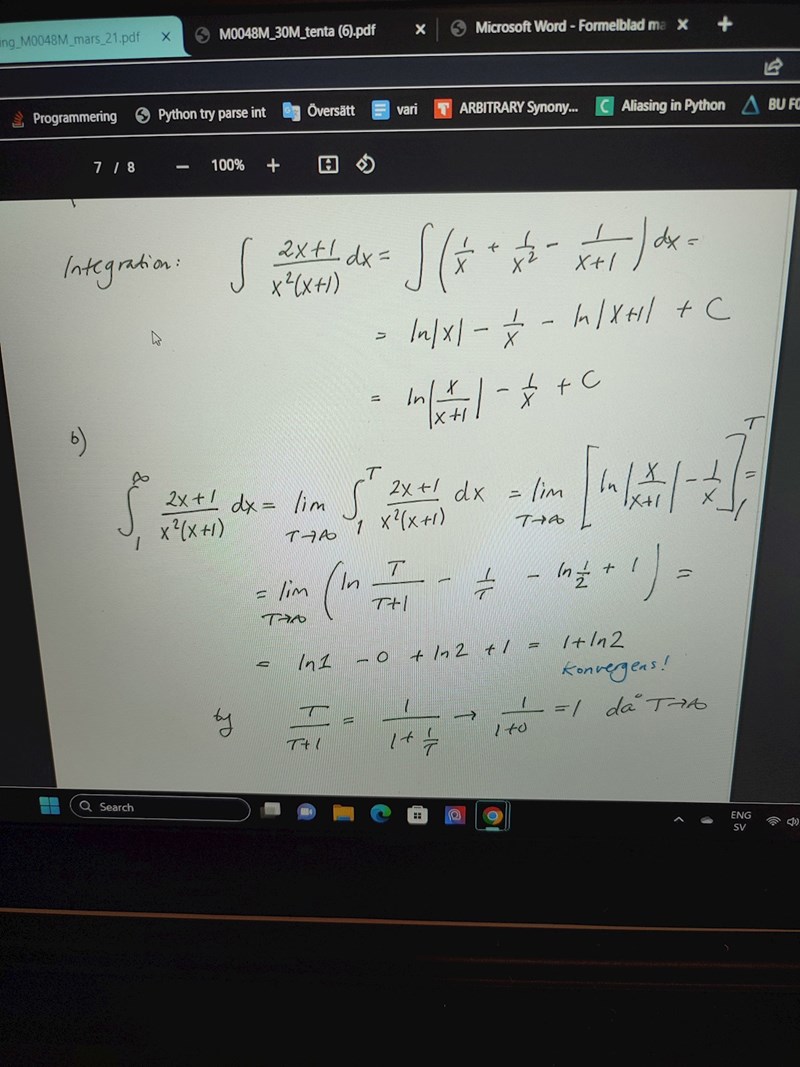 ng_M0048M_mars_21.pdf × M0048M_30M_tenta (6).pdf × Microsoft Word - Formelblad ma × +
Programmering Python try parse int Översätt vari ARBITRARY Synony... Aliasing in Python BU FO
7 / 8 − 100% +
Integration: ∫ (2x+1)/(x²(x+1)) dx = ∫ (1/x + 1/x² − 1/(x+1)) dx =
= ln|x| − 1/x − ln|x+1| + C
= ln|x/(x+1)| − 1/x + C
b)
∫₁^∞ (2x+1)/(x²(x+1)) dx = lim T→∞ ∫₁^T (2x+1)/(x²(x+1)) dx = lim T→∞ [ln|x/(x+1)| − 1/x]₁^T =
= lim T→∞ (ln T/(T+1) − 1/T − ln 1/2 + 1) =
= ln1 − 0 + ln2 + 1 = 1+ln2
Konvergens!
ty T/(T+1) = 1/(1+1/T) → 1/(1+0) = 1 då T→∞
Search
ENG
SV